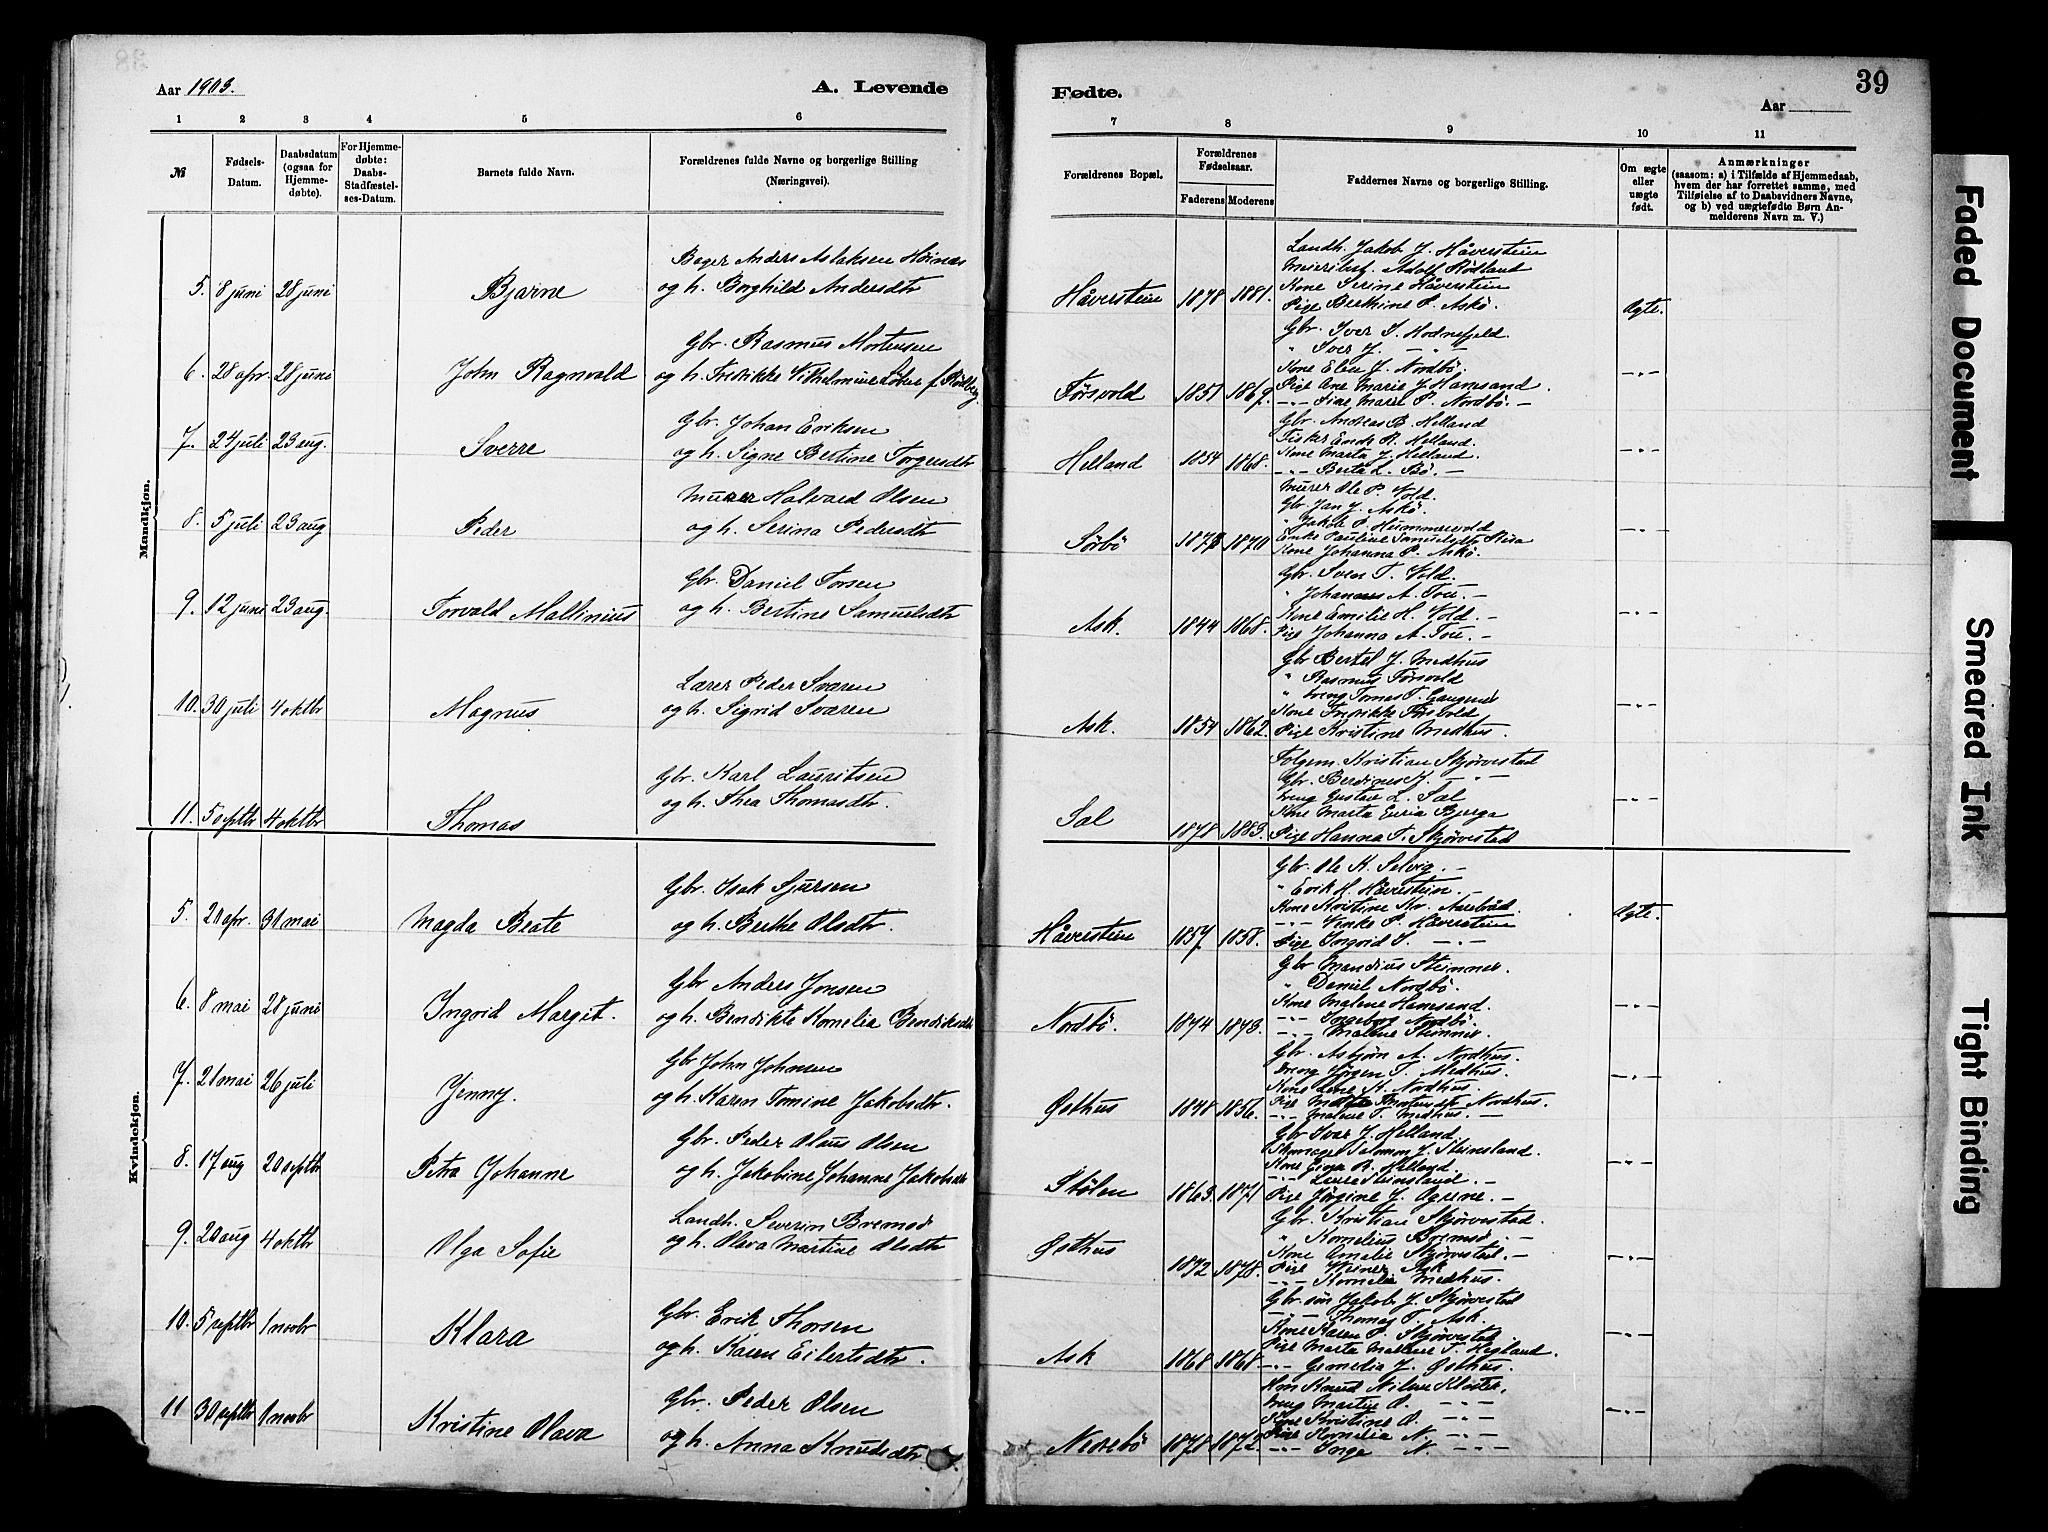 Aar 1903.
A. Levende
Fødte.
39
Aar
1 2 3 4 5 6 7 8 9 10 11
№
Fødsels-
Datum.
Daabsdatum
(ogsaa for
Hjemme-
døbte).
For Hjemme-
døbte:
Daabs-
Stadfæstel-
ses-Datum.
Barnets fulde Navn.
Forældrenes fulde Navne og borgerlige Stilling
(Næringsvei).
Forældrenes Bopæl.
Forældrenes
Fødselsaar.
Faderens Moderens
Faddernes Navne og borgerlige Stilling.
Om ægte
eller
uægte
født.
Anmærkninger
(saasom: a) i Tilfælde af Hjemmedaab,
hvem der har forrettet samme, med
Tilføielse af to Daabsvidners Navne,
og b) ved uægtefødte Børn An-
melderens Navn m. V.)
Mandkjøn.
5. 8 juni 28 juni Bjarne
Bager Anders Aslaksen
og h. Borghild Andersdtr
Håverstein 1878 1881.
Landh. Jakob J. Håverstein
Adolf Rödland
Kone Serine Håverstein
Pige Berthine P. Askö.
Ægte.
6. 28 apr. 28 juni John Ragnvald
Gbr. Rasmus Mortensen
og h. Fredrikke Vilhelmine
Försvold 1851 1869.
Gbr. Iver S. Hodnefjeld.
" Iver J. -"-
Kone Elen J. Nordbö.
Pige Ane Marie J. Hamsand.
-"- Marie P. Nordbö. -
-"-
7. 24 juli 23 aug. Sverre
Gbr. Johan Eriksen
og h. Signe Bertine Torgersdtr
Helland 1854 1868.
Gbr. Andreas B. Helland
Fisker Endr. R. Helland.
Kone Marta J. Helland.
-"- Berta L. Bö. -
-"-
8. 5 juli 23 aug Peder
Murer Halvard Olsen
og h. Serina Pedersdtr
Sörbö 1870.
Murer Ole P. Vold.
Gbr. Jan J. Askö.
" Jakob P. Hummervold
Enke Pauline Samuelsdtr
Kone Johanna P. Askö.
-"-
9. 12 juni 23 aug. Torvald Mallinius
Gbr. Daniel Torsen
og h. Bertine Samuelsdtr
Ask. 1844 1868.
Gbr. Sven T. Vold.
" Johannes A. Tou. -
Kone Emilie H. Vold -
Pige Johanna A. Tou. -
-"-
10. 30 juli 4 oktbr Magnus
Lærer Peder Sværen
og h. Sigrid Sværen
Ask. 1854 1862.
Gbr Bertel J. Medhus
" Rasmus Försvold
" Dreng Tomas T.
Kone Fredrikke Försvold
Pige Kristine Medhus.
-"-
11. 5 septbr 4 oktbr Thomas
Gbr. Karl Lauritsen
og h. Thea Thomasdtr.
Sæl 1878 1883.
Folgem. Kristian Skjörvestad
Gbr. Berdines K. -"-
Dreng Gustav L. Sæl
Kone Marta Bjerga
Pige Hanna T. Skjörvestad
-"-
Kvindekjøn.
5. 21 apr. 31 mai Magda Beate
Gbr. Isak Sjursen
og h. Berthe Olsdtr.
Håverstein 1857 1858.
Gbr. Ole K. Selvig. -
" Erik H. Håverstein. -
Kone Kristine Kr.
-"- P. Håverstein
Pige Ingvid I. -"-
Ægte.
6. 8 mai 28 juni Ingvid Margit.
Gbr Anders Jonsen
og h. Bendikte Kornelia Bendiksdtr
Nordbö. 1844 1843.
Gbr Mandius Steinnes.
" Daniel Nordbö.
Kone Malene Hamsand.
-"- Ingeborg Nordbö.
-"- Malene Steinnes.
-"-
7. 21 mai 26 juli Jenny.
Gbr John Johnsen
og h. Karen Tomine Jakobsdtr.
Østhus 1848 1856.
Gbr. Asbjørn A. Nordhus.
Dreng Jörgen T. Medhus.
Kone Lene K. Nordhus.
Pige Nordhus.
-"- Malene T. Medhus. -
-"-
8. 17 aug 20 septbr Petra Johanne
Gbr. Peder Olaus Olsen
og h. Jakobine Johanne Jakobsdtr
Stölen 1863 1871
Gbr Ivar J. Helland.
Salomon J. Steinsland.
Kone R. Helland.
-"- Steinsland. -
Pige Jörgine J. -
-"-
9. 20 aug 4 oktbr Olga Sofie
Landh. Severin Bremsö
og h. Olava Martine Olsdtr
Østhus 1872 1878.
Gbr. Kristian Skjörvestad.
" Kornelius Bremsö. -
Kone Amalie Skjörvestad. -
Pige Ask
-"- Kornelia Medhus.
-"-
10. 5 septbr 1 novbr Klara
Gbr. Erik Thorsen
og h. Karen Eilertsdtr.
Ask 1868 1868
Gbr. sön Jakob J. Skjörvestad
-"- Thomas T. Ask.
Kone Karen P. Skjörvestad
Pige Marta Malene T. Hegland.
-"- J. Østhus.
-"-
11 30 septbr 1 novbr Kristine Olava
Gbr. Peder Olsen
og h. Anna Knudsdtr
Nedrebö 1878 1872.
Knud Nilsen Kloster,
Dreng O. -"-
Kone Kristine O. -"-
Pige Kornelia N. -"-
-"- Inga N. -"-
-"-
Faded Document
Smeared Ink
Tight Binding